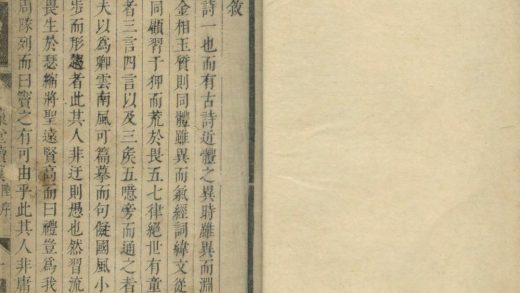 敘
詩一也而有古詩近體之異時雖異而淵
金相玉質則同體雖異而氣經詞緯文從
同顧習于狎而荒於畏五七律絕世有童
者三言四言以及三矦五噫旁而通之者
夫以為卿雲南風可篇摹而句儗國風小
步而形趨者此其人非迂則愚也然習流
畏生於瑟縮將聖遠賢高而曰禮豈為我
周隊列而曰賓之有可由乎此其人非庸